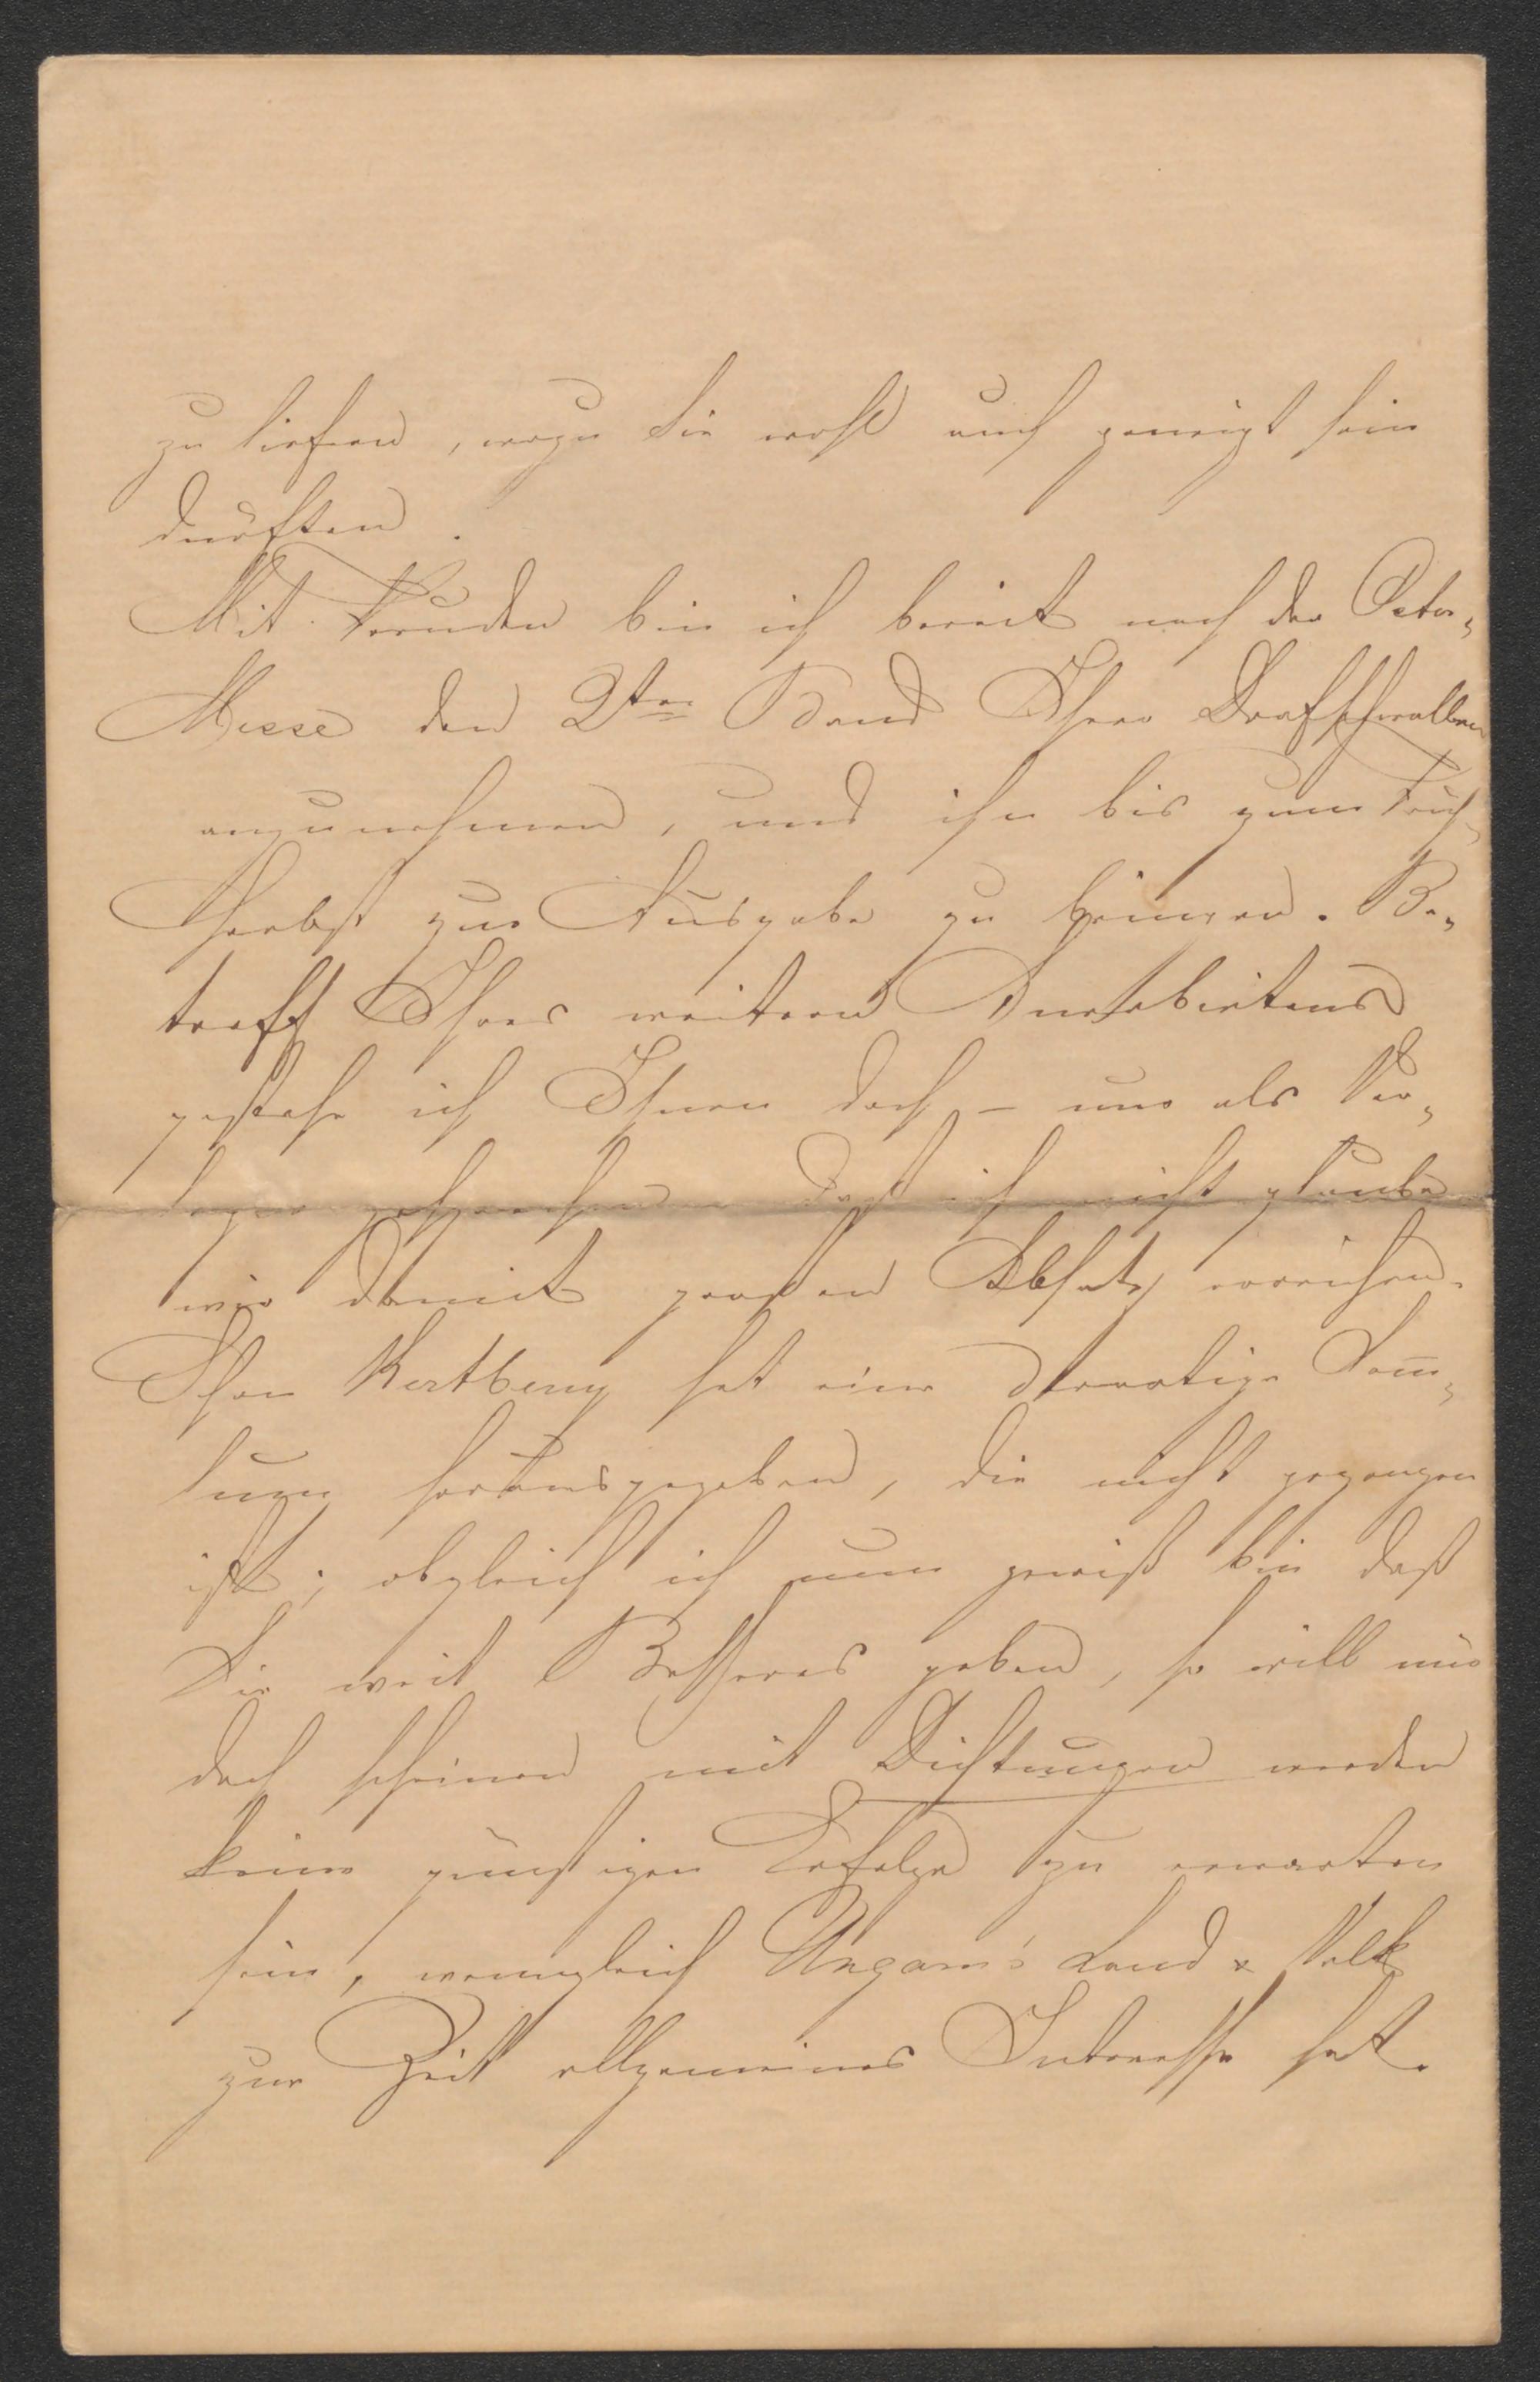 zu liefern, wozu Sie wohl auch geneigt sein
dürften.
Mit Freuden bin ich bereit nach der Oster-
Messe den 2ten Band Ihrer Dorfschwalben
anzunehmen, und ihn bis zum Früh-
Herbst zur Ausgabe zu bringen. Be-
treff Ihres weitern Anerbietens
gestehe ich Ihnen doch – nur als Ver-
leger gesprochen daß ich nicht glaube
wir damit großen Absatz erreichen.
Schon Kertbeny hat eine derartige Sam̅-
lung herausgegeben, die nicht gegangen
ist; obgleich ich nun gewiß bin daß
Sie weit Besseres geben, so will mir
doch scheinen mit Dichtungen werden
keine günstigen Erfolge zu erwarten
sein, wenngleich Ungarn's Land & Volk
zur Zeit allgemeines Interesse hat.